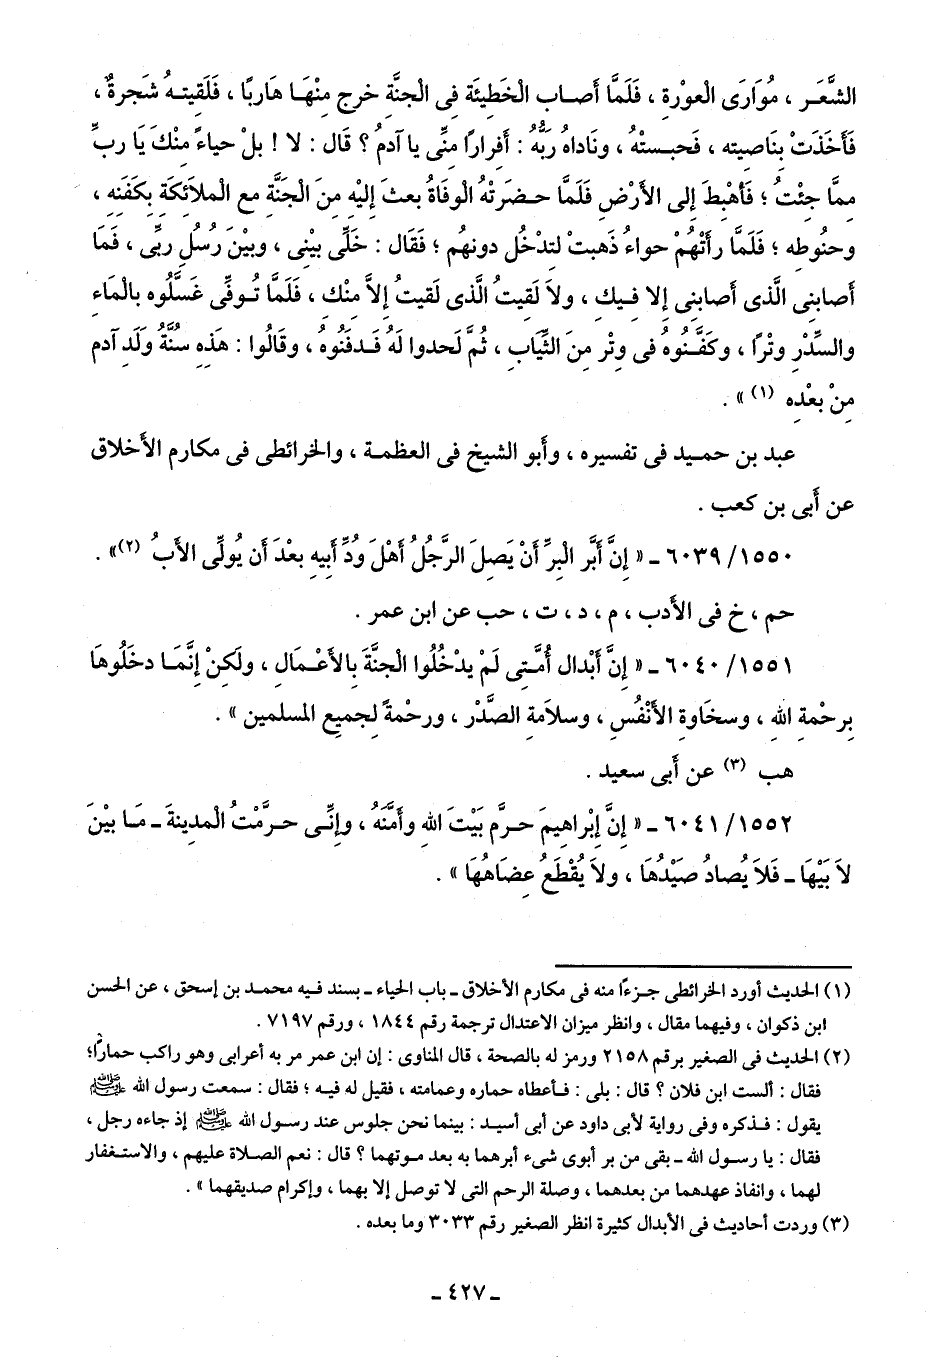 الشَّعَر ، مُوَارَى الْعوْرة ، فَلَمَّا أصاب الْخَطيئَة فى الْجنَّة خرج منْهَا هَاربًا ، فَلَقيتهُ شَجرةٌ ،
فَأَخَذَتْ بنَاصيته ، فَحبستْهُ ، ونَاداهُ رَبُّهُ : أَفرارًا منِّى يا آدمُ ؟ قَال : لا ! بلْ حياءً منْكَ يَا ربِّ
مما جئْتُ ؛ فَأهْبِطَ إلى الأَرْضِ فَلَمَّا حضَرتْهُ الْوفَاةُ بعثَ إلَيْه منَ الْجَنَّة مع الْملاَئكَة بكَفَنه ،
وحنُوطه ؛ فَلَمَّا رأَتْهُمْ حواءُ ذَهبتْ لتدْخُل دونهُم ؛ فَقَال : خَلِّى بيْنِى ، وبيْنَ رُسُلِ ربِّى ، فَمَا
أصابنِى الَّذى أصابنِى إلا فيك ، ولاَ لَقيتُ الَّذى لَقيتُ إلاَّ منْك ، فَلَمَّا تُوفِّى غَسَّلُوه بالْماء
والسِّدْر وتْرًا ، وكَفَّنُوهُ فى وتْر منَ الثِّيَاب ، ثُمَّ لَحدوا لَهُ فَدفَنُوهُ ، وقَالُوا : هَذه سُنَّةُ ولَد آدم
منْ بعْده (١) » .
عبد بن حميد فى تفسيره ، وأبو الشيخ فى العظمة ، والخرائطى فى مكارم الأخلاق
عن أبى بن كعب .
١٥٥٠/ ٦٠٣٩ ـ « إنَّ أَبَّر الْبرِّ أَنْ يَصلَ الرَّجُلُ أَهْلَ وُدِّ أَبيه بعْدَ أَن يُولِّى الأَبُ (٢)» .
حم ، خ فى الأدب ، م ، د ، ت ، حب عن ابن عمر .
١٥٥١/ ٦٠٤٠ ـ « إنَّ أَبْدال أُمَّتِى لَمْ يدْخُلُوا الْجنَّةَ بالأَعْمَال ، ولَكنْ إنَّمَا دخَلُوهَا
برحْمة الله ، وسخَاوة الأَنْفُسِ ، وسلاَمة الصَّدْر ، ورحْمةً لجميع المسلمين » .
هب (٣) عن أبى سعيد .
١٥٥٢/ ٦٠٤١ ـ « إنَّ إبْراهيمَ حرَّم بَيْتَ الله وأَمَّنَهُ ، وإنِّى حرَّمْتُ الْمدينةَ ـ مَا بيْنَ
لاَ بَيْهَا ـ فَلاَ يُصادُ صيْدُهَا ، ولاَ يُقْطَعُ عضَاهُهَا » .
(١) الحديث أورد الخرائطى جزءًا منه فى مكارم الأخلاق ـ باب الحياء ـ بسند فيه محمد بن إسحق ، عن الحسن
ابن ذكوان ، وفيهما مقال ، وانظر ميزان الاعتدال ترجمة رقم ١٨٤٤ ، ورقم ٧١٩٧ .
(٢) الحديث فى الصغير برقم ٢١٥٨ ورمز له بالصحة ، قال المناوى : إن ابن عمر مر به أعرابى وهو راكب حمارًا؛
فقال : ألست ابن فلان ؟ قال : بلى : فأعطاه حماره وعمامته ، فقيل له فيه ؛ فقال : سمعت رسول الله ﷺ
يقول : فذكره وفى رواية لأبى داود عن أبى أسيد : بينما نحن جلوس عند رسول الله ﷺ إذ جاءه رجل ،
فقال : يا رسول الله ـ بقى من بر أبوى شىء أبرهما به بعد موتهما ؟ قال : نعم الصلاة عليهم ، والاستغفار
لهما ، وانفاذ عهدهما من بعدهما ، وصلة الرحم التى لا توصل إلا بهما ، وإكرام صديقهما » .
(٣) وردت أحاديث فى الأبدال كثيرة انظر الصغير رقم ٣٠٣٣ وما بعده .
ـ ٤٢٧ ـ